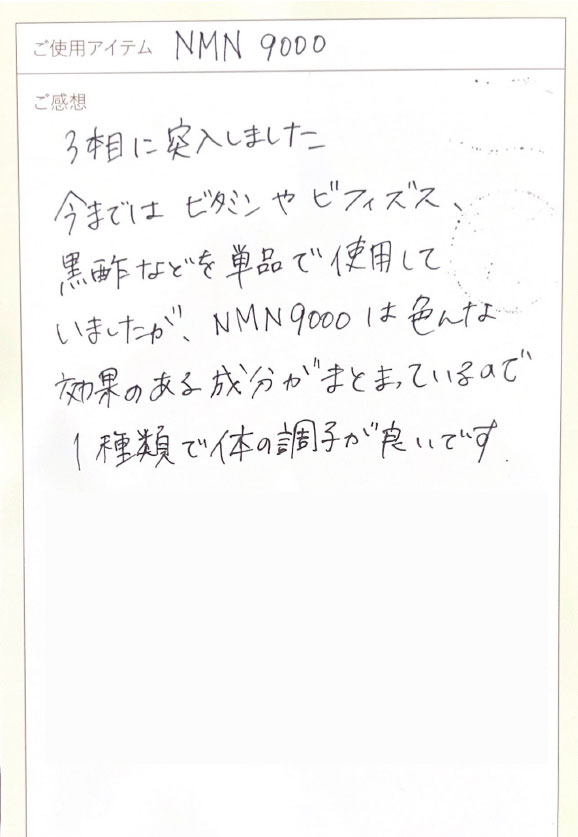 ご使用アイテム NMN 9000
ご感想
3本目に突入しました
今までは ビタミンや ビフィズス、
黒酢などを単品で使用して
いましたが、NMN9000は色んな
効果のある成分がまとまっているので
1種類で体の調子が良いです.